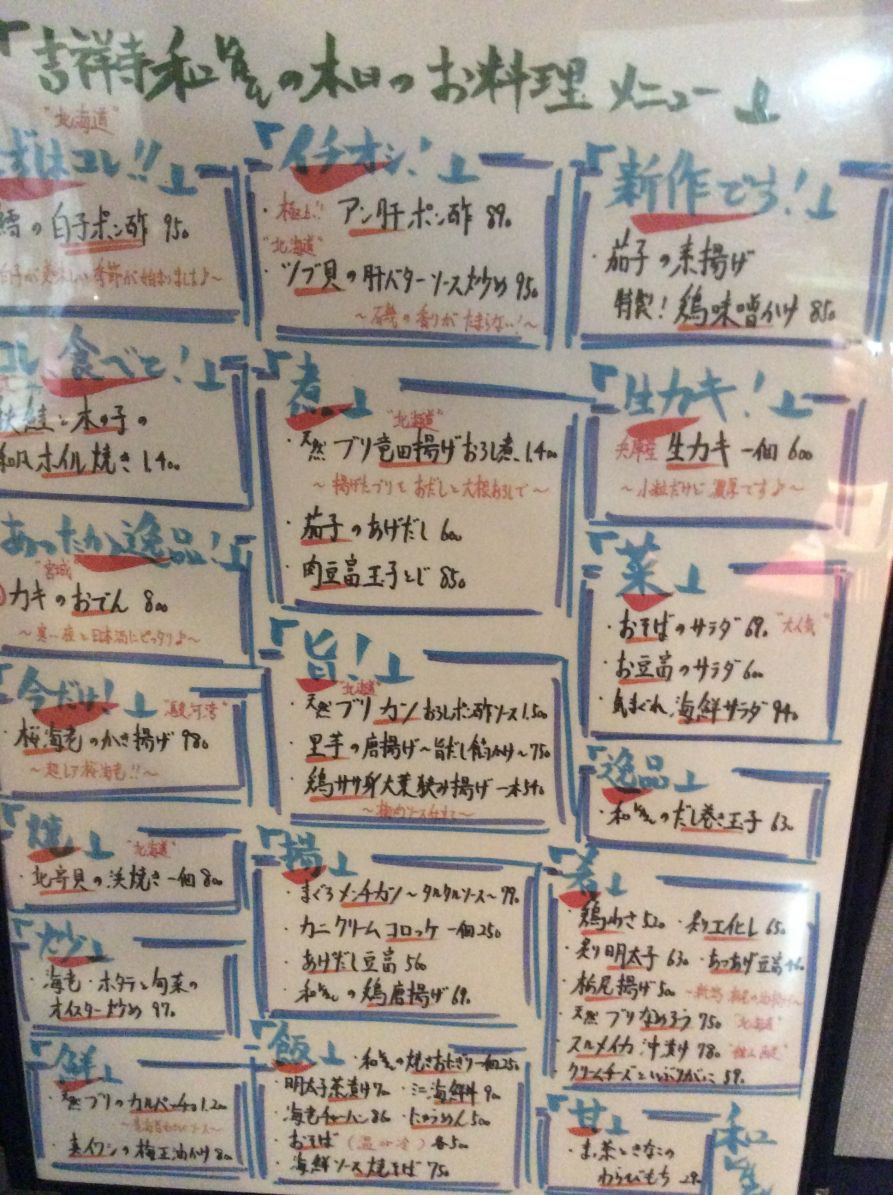 「吉祥寺 和 の本日のお料理メニュー」
"北海道"
ずはコレ!!」
鱈の白子ポン酢 950
白子が美味しい季節が始まりました♪〜
コレ、食べて!」
鮭と木の子の
和風ホイル焼き 1,400
あったか逸品!」
"宮城"
カキのおでん 800
〜寒い夜と日本酒にピッタリ♪〜
「今だけ!」
"駿河湾"
・桜海老のかき揚げ 980
〜超レア桜海老!!〜
「焼」
"北海道"
・北寄貝の浜焼き 一個 800
「炒」
・海老・ホタテと旬菜の
オイスター炒め 970
「鮮」
・天然ブリのカルパッチョ 1,200
・真イワシの梅玉油がけ 800
「イチオシ!」
・極上!! アン肝ポン酢 890
"北海道"
・ツブ貝の肝バターソース炒め 950
〜磯の香りがたまらない!〜
「煮」
"北海道"
・天然ブリ竜田揚げおろし煮 1,400
〜揚げたブリをおだしと大根おろしで〜
・茄子のあげだし 600
・肉豆富玉子とじ 850
「旨!」
"北海道"
・天然ブリカツおろしポン酢ソース 1,500
・里芋の唐揚げ〜旨だし餡かけ〜 750
・鶏ササ身大葉挟み揚げ 一本 540
「揚」
・まぐろメンチカツ〜タルタルソース〜 990
・カニクリームコロッケ 一個 250
・あげだし豆富 560
・和 の鶏唐揚げ 690
「飯」
・和 の焼きおにぎり 一個 250
・明太子茶漬け 700 ・ミニ海鮮丼 900
・海老チャーハン 860 ・にゅうめん 500
・おそば (温or冷) 各500
・海鮮ソース焼そば 750
「新作です!」
・茄子の素揚げ
特製!鶏味噌がけ 850
「生カキ!」
兵庫産 生カキ 一個 600
〜小粒だけど濃厚です♪〜
「菜」
・おそばのサラダ 690 "大人気"
・お豆富のサラダ 600
・気まぐれ海鮮サラダ 940
「逸品」
・和 のだし巻き玉子 630
「肴」
・鶏わさ 520 ・炙りエイヒレ 650
・炙り明太子 630 ・あつあげ豆富
・栃尾揚げ 500
・天然ブリなめろう 750 "北海道"
・スルメイカ沖漬け 980
・クリームチーズといぶりがっこ 590
「甘」
・お茶ときなこの
わらびもち 290
和